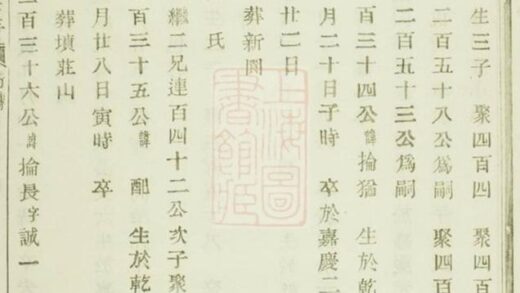 生三子 聚四百四 聚四百
二百五十八公爲嗣 聚四百
二百五十三公爲嗣
百三十四公諱掄猶 生於乾
月二十日子時 卒於嘉慶二
廿二日
葬新園
生 氏
繼二兄連百四十二公次子聚
百三十五公諱 配 生於乾
月廿八日寅時 卒
葬墳莊山
二百三十六公諱掄長字誠一
上海圖書館藏